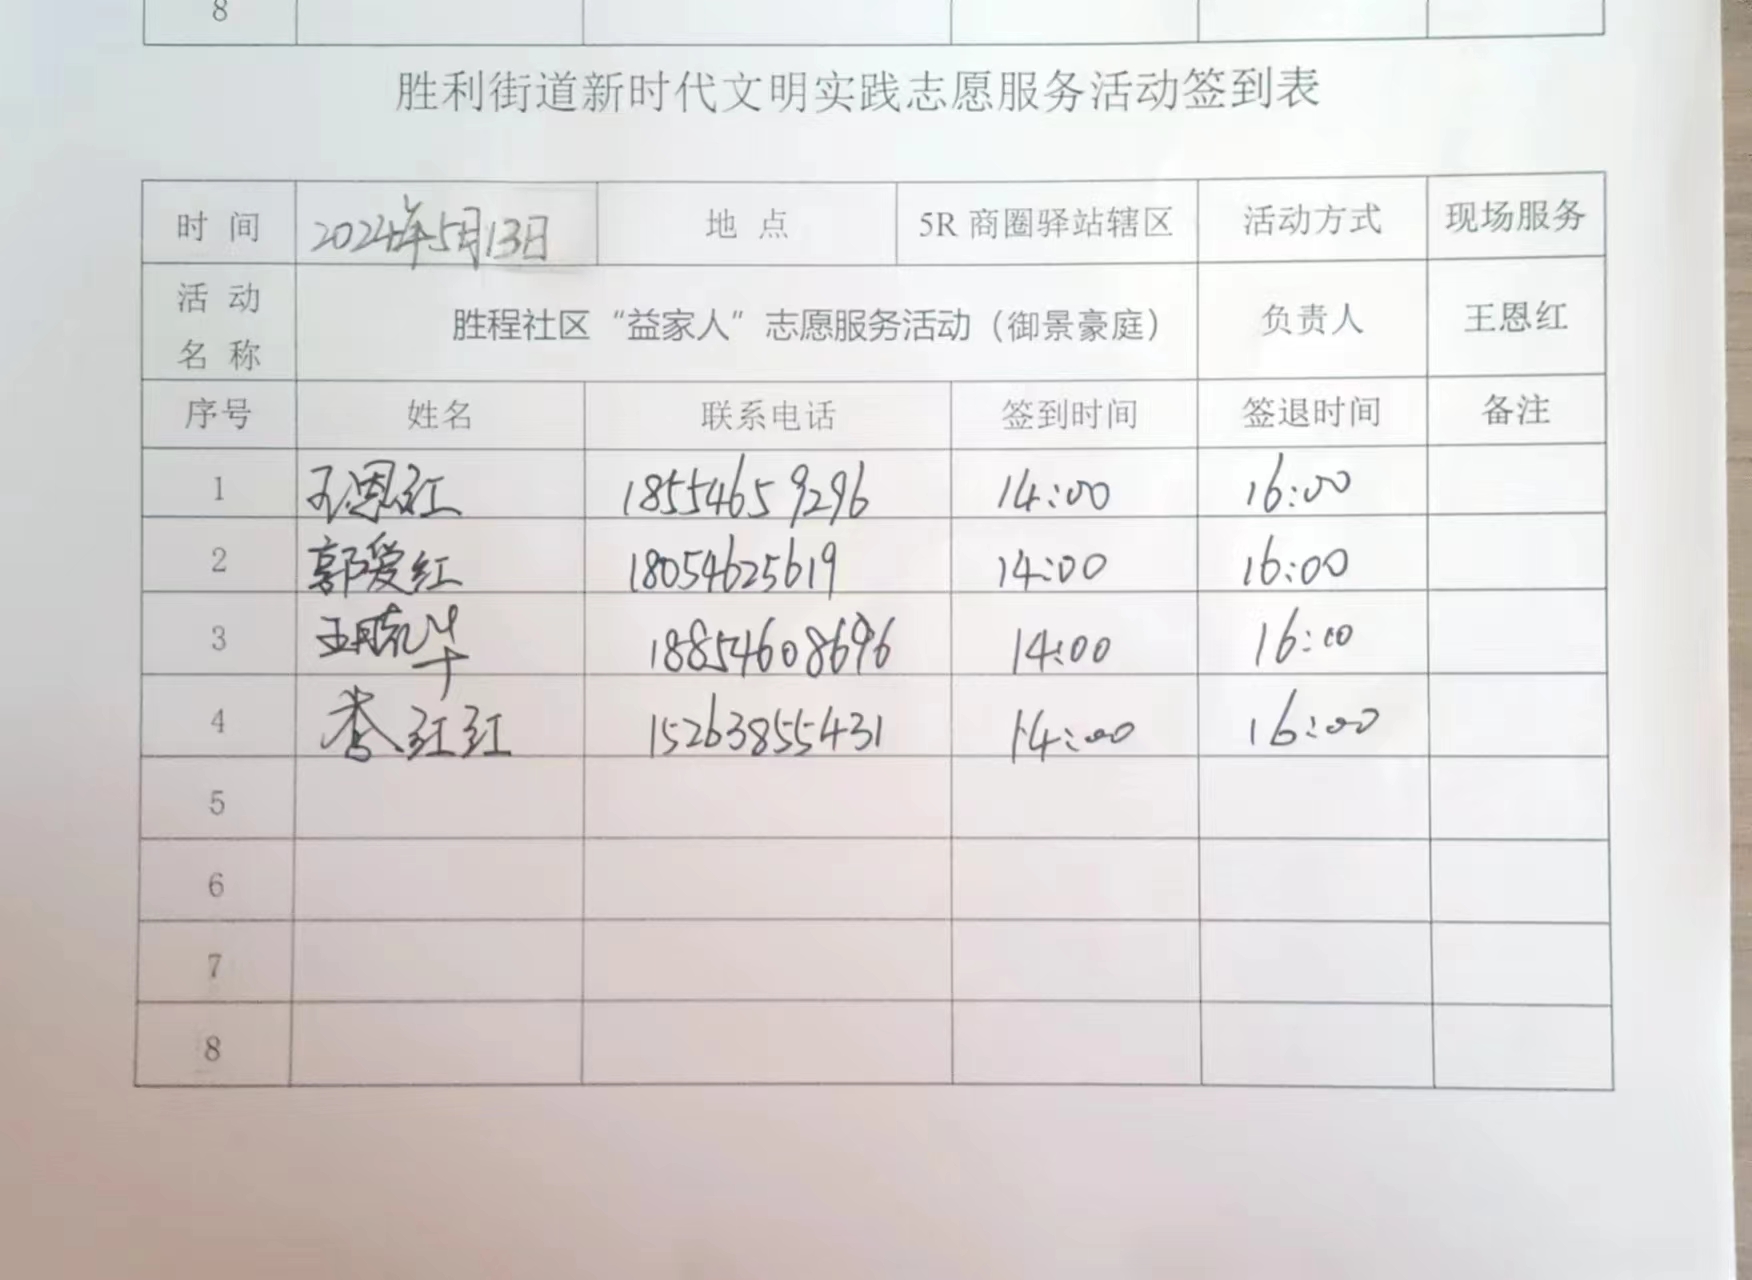 8
胜利街道新时代文明实践志愿服务活动签到表
时 间 2024年5月13日 地 点 5R 商圈驿站辖区 活动方式 现场服务
活 动
名 称 胜程社区“益家人”志愿服务活动（御景豪庭） 负责人 王恩红
序号 姓名 联系电话 签到时间 签退时间 备注
1 王恩红 18554659296 14:00 16:00
2 郭爱红 18054625619 14:00 16:00
3 18854608696 14:00 16:00
4 红红 15263855431 14:00 16:00
5
6
7
8